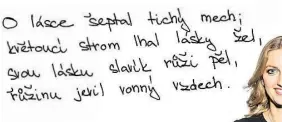 O lásce šeptal tichý mech;
květoucí strom lhal lásky žel,
svou lásku slavík růži pěl,
růžinu jevil vonný vzdech.